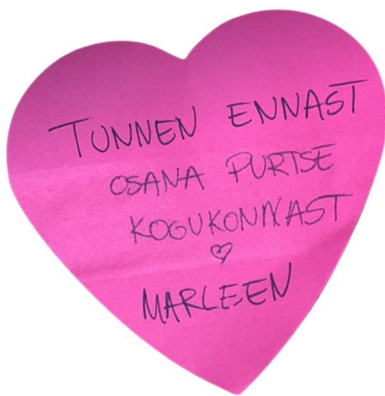 TUNNEN ENNAST
OSANA PURTSE
KOGUKONNAST
♡
MARLEEN